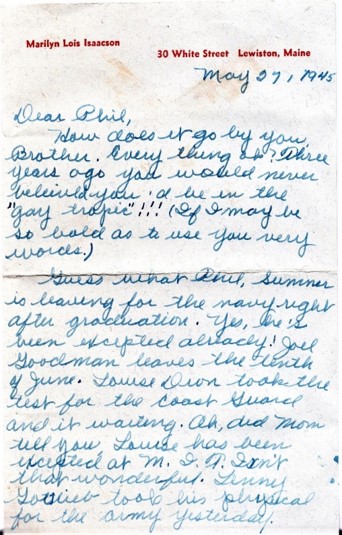 Marilyn Lois Isaacson
30 White Street Lewiston, Maine
May 27, 1945
Dear Phil,
How does it go by you,
Brother. Every thing ok? Three
years ago you would never
beleived you'd be in the
"gay tropic"!!! (If I may be
so bold as to use you very
words.)
Guess what Phil, Sumner
is leaving for the navy right
after graduation. Yes, he's
been excepted already! Joel
Goodman leaves the tenth
of June. Louise Dion took the
test for the Coast Guard
and it waiting. Oh, did Mom
tell you, Louise has been
excepted at M. I. T. Isn't
that wonderful. Lenny
Gottlieb took his physical
for the army yesterday.